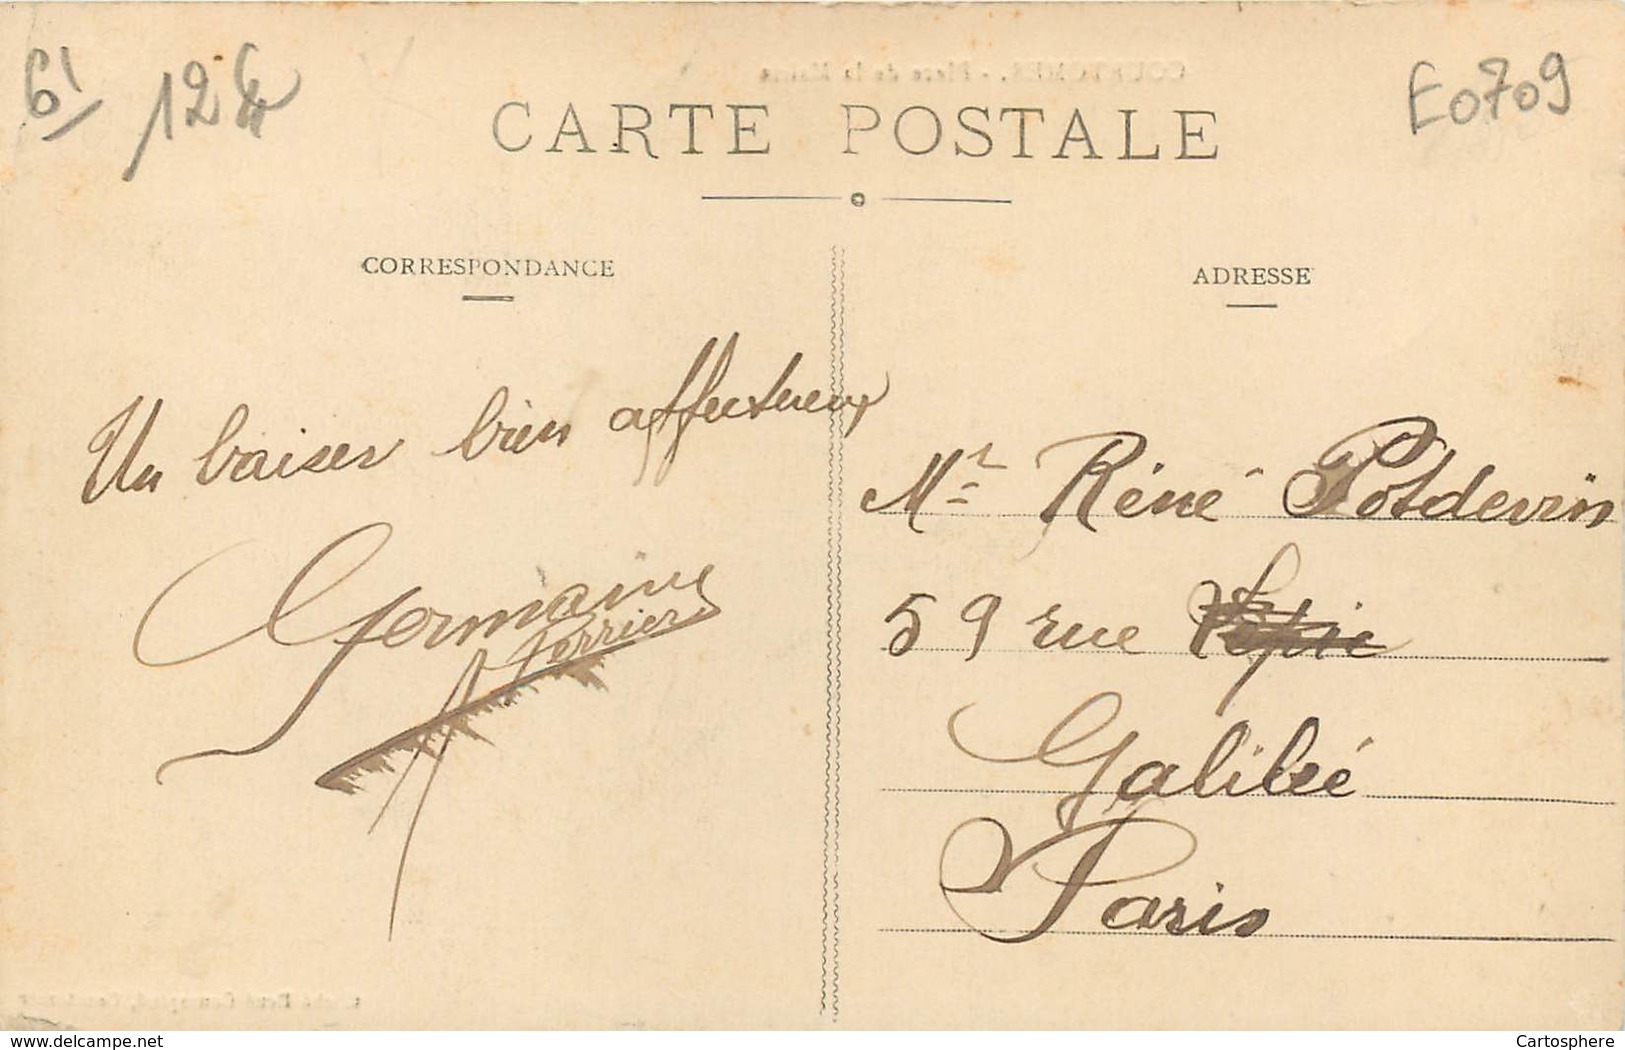 61
124
E0709
COURTOMER. - Place de la Mairie
CARTE POSTALE
CORRESPONDANCE
ADRESSE
Un baiser bien affectueux
Germaine
Perrier
Mr Réné Potdevin
59 rue Lepic
Galilée
Paris
www.delcampe.net
Cartosphere